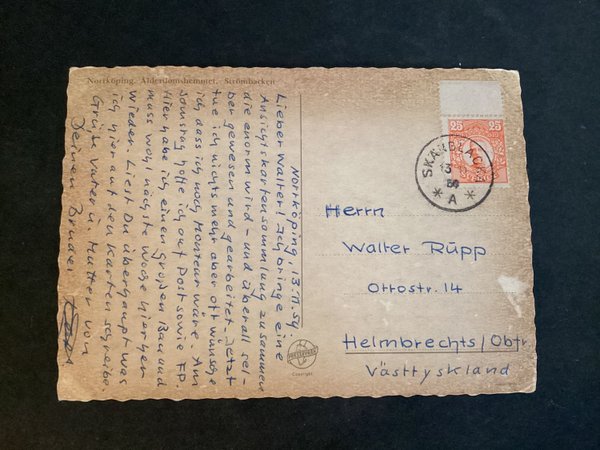 Norrköping. Ålderdomshemmet. Strömbacken
Norrköping, 13.11.54.
Lieber Walter! Ich bringe eine
Ansichtskartensammlung zusammen
die enorm wird – und überall sel-
ber gewesen und gearbeitet. Jetzt
tue ich nichts mehr aber oft wünsche
ich dass ich noch Monteur wäre. Am
Samstag hoffe ich auf Post sowie FP.
Hier habe ich einen Großen Bau und
muss wohl nächste Woche hierher
wieder. Liest Du überhaupt was
ich hier auf den Karten schreibe.
Grüße Vater u. Mutter von
Deinem Bruder
25 25
SKÄRBLACKA
13
54
* A *
Herrn
Walter Rupp
Ottostr. 14
Helmbrechts/Obfr.
Västtyskland
Copyright